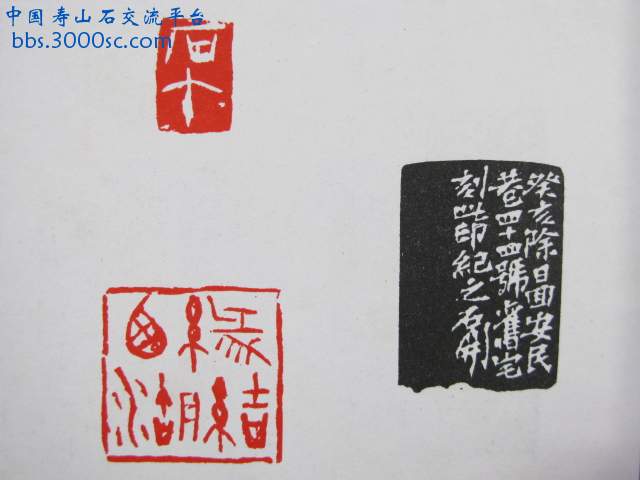 中国寿山石交流平台
bbs.3000sc.com
癸亥除日回安民
巷四十四號舊宅
刻此印紀之石開
緣結
西湖